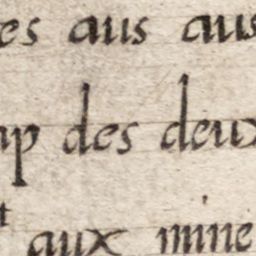 es aus aus
p des deux
t aux mine